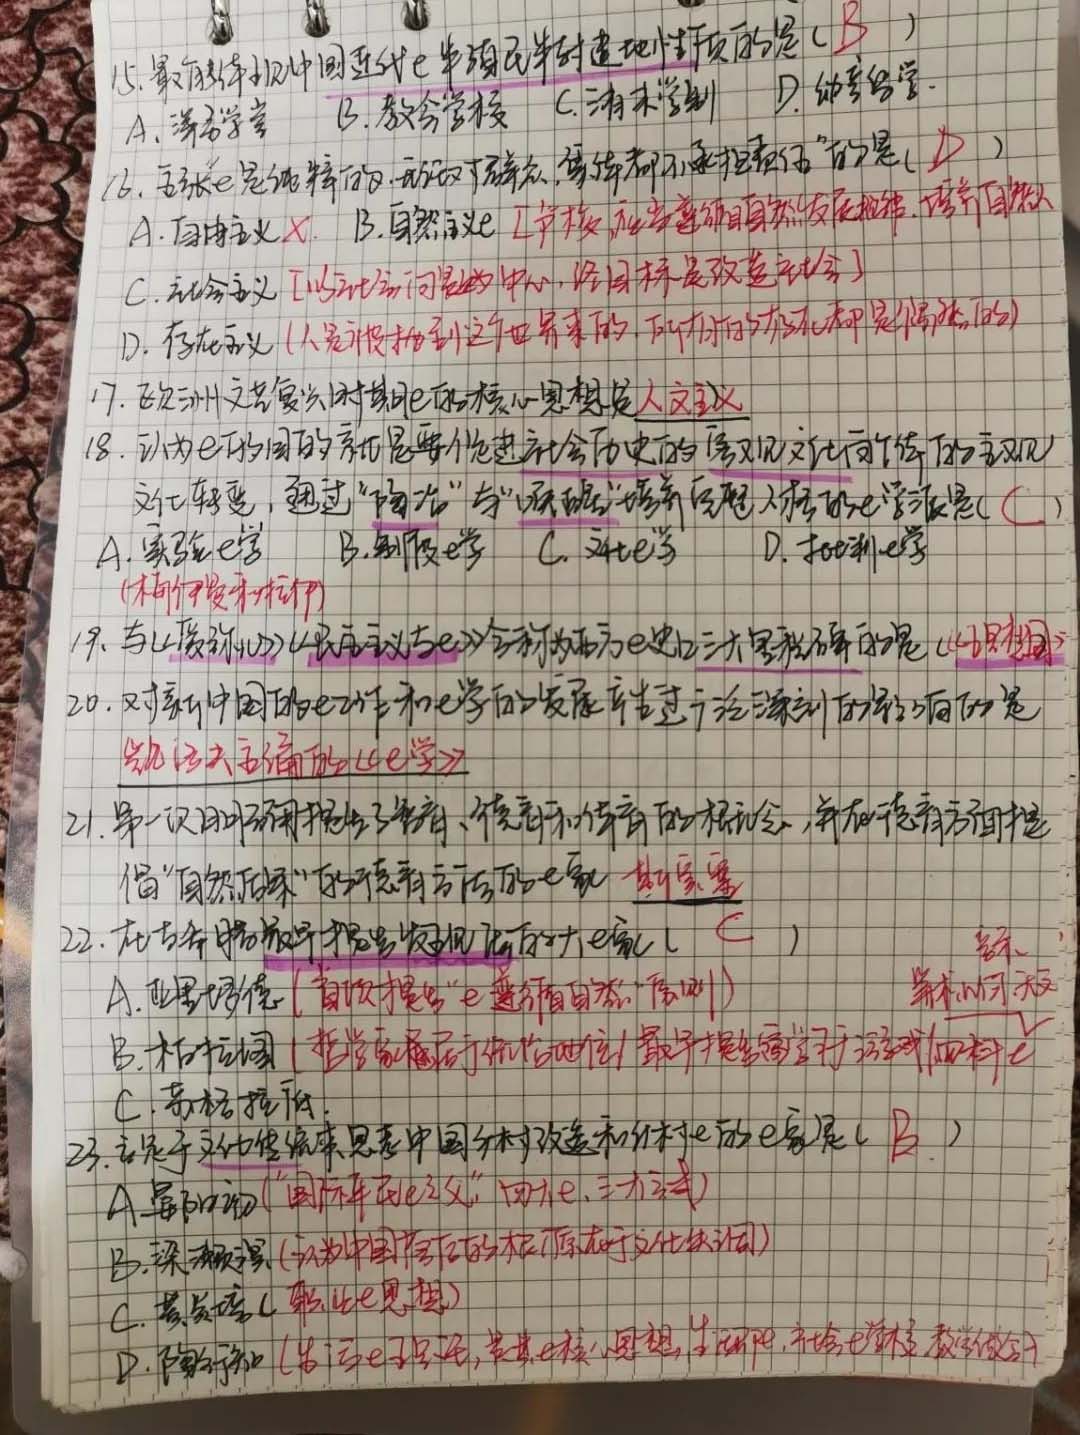 15. 最能体现中国近代e半殖民半封建地性质的是( B )
A. 洋务学堂 B. 教会学校 C. 清末学制 D. 幼童留学.
16. 主张e是纯粹的、 对群众、集体都不承担责任"的是( D )
A. 自由主义 X. B. 自然主义e [学校 应当遵循自自然发展规律. 培养自然人
C. 社会主义 [以社会问题为中心, 终目标是改造社会]
D. 存在主义 (人是被抛到这个世界来的, 所有的 都是偶然的)
17. 欧洲文艺复兴时期e的核心思想是人文主义
18. 认为e的目的就是要促进社会历史的客观文化向个体的主观
文化转变, 通过"陶冶"与"唤醒"培养完整人格的e学派是( C )
A. 实验e学 B. 制度e学 C. 文化e学 D. 批判e学
(梅伊曼和拉伊)
19. 与《爱弥儿》《民主主义与e》合称为西方e史上三大里程碑的是《理想国》
20. 对新中国的e工作和e学的发展产生过 深刻的影响的是
凯洛夫主编的《e学》
21. 第一次明确提出了智育、德育和体育的概念, 并在德育方面提
倡"自然后果"的德育方法的e家 斯宾塞
22. 在古希腊最早提出发现法的大e家( C )
A. 亚里士多德 (首次提出"e遵循自然"原则)
音乐、
算术几何天文
B. 柏拉图 (哲学家 最早提出寓学习于游戏/四科e
C. 苏格拉底.
23. 立足于文化传统来思考中国乡村改造和乡村e的e家是( B )
A. 晏阳初 ("国际平民e之父" 四大e、三大方式)
B. 梁漱溟 (认为中国 的根源在于文化失调)
C. 黄炎培 ( 职业e思想)
D. 陶行知 (生活e理论, 是其e核心思想, 生活即e, 社会e学校, 教学做合一)